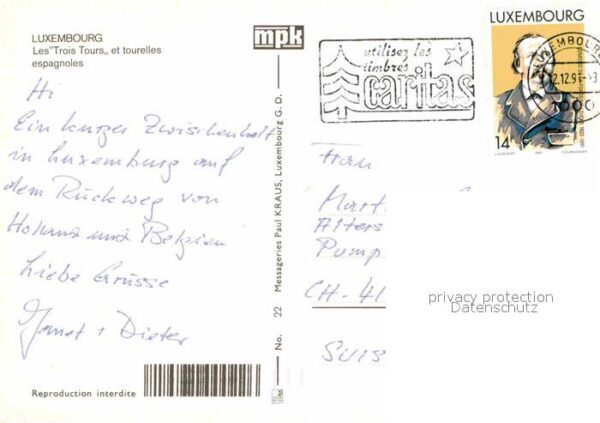 LUXEMBOURG
Les "Trois Tours,, et tourelles
espagnoles
Hi
Ein kurzer Zwischenhalt
in Luxemburg auf
dem Rückweg von
Holland und Belgien
Liebe Grüsse
+ Dieter
Reproduction interdite
mpk
No. 22 Messageries Paul KRAUS, Luxembourg G. D.
utilisez les
timbres
caritas
LUXEMBOURG
LUXEMBOURG
1000
14F
1991
Frau
Mart
Alters
Pump
CH-41
privacy protection
Datenschutz